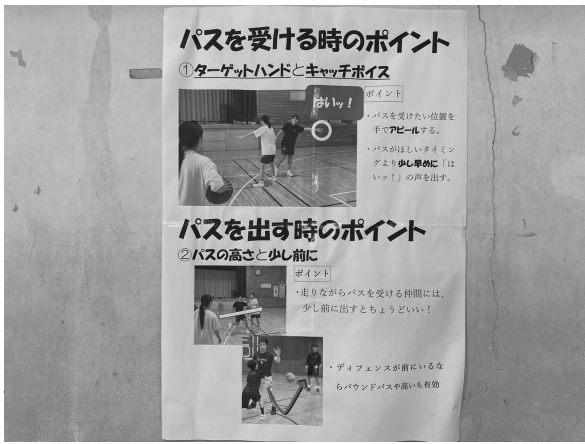 パスを受ける時のポイント
①ターゲットハンドとキャッチボイス
はいッ！
ポイント
・パスを受けたい位置を
手でアピールする。
・パスがほしいタイミン
グより少し早めに「は
いッ！」の声を出す。
パスを出す時のポイント
②パスの高さと少し前に
ポイント
・走りながらパスを受ける仲間には、
少し前に出すとちょうどいい！
・ディフェンスが前にいるな
らバウンドパスや高いも有効